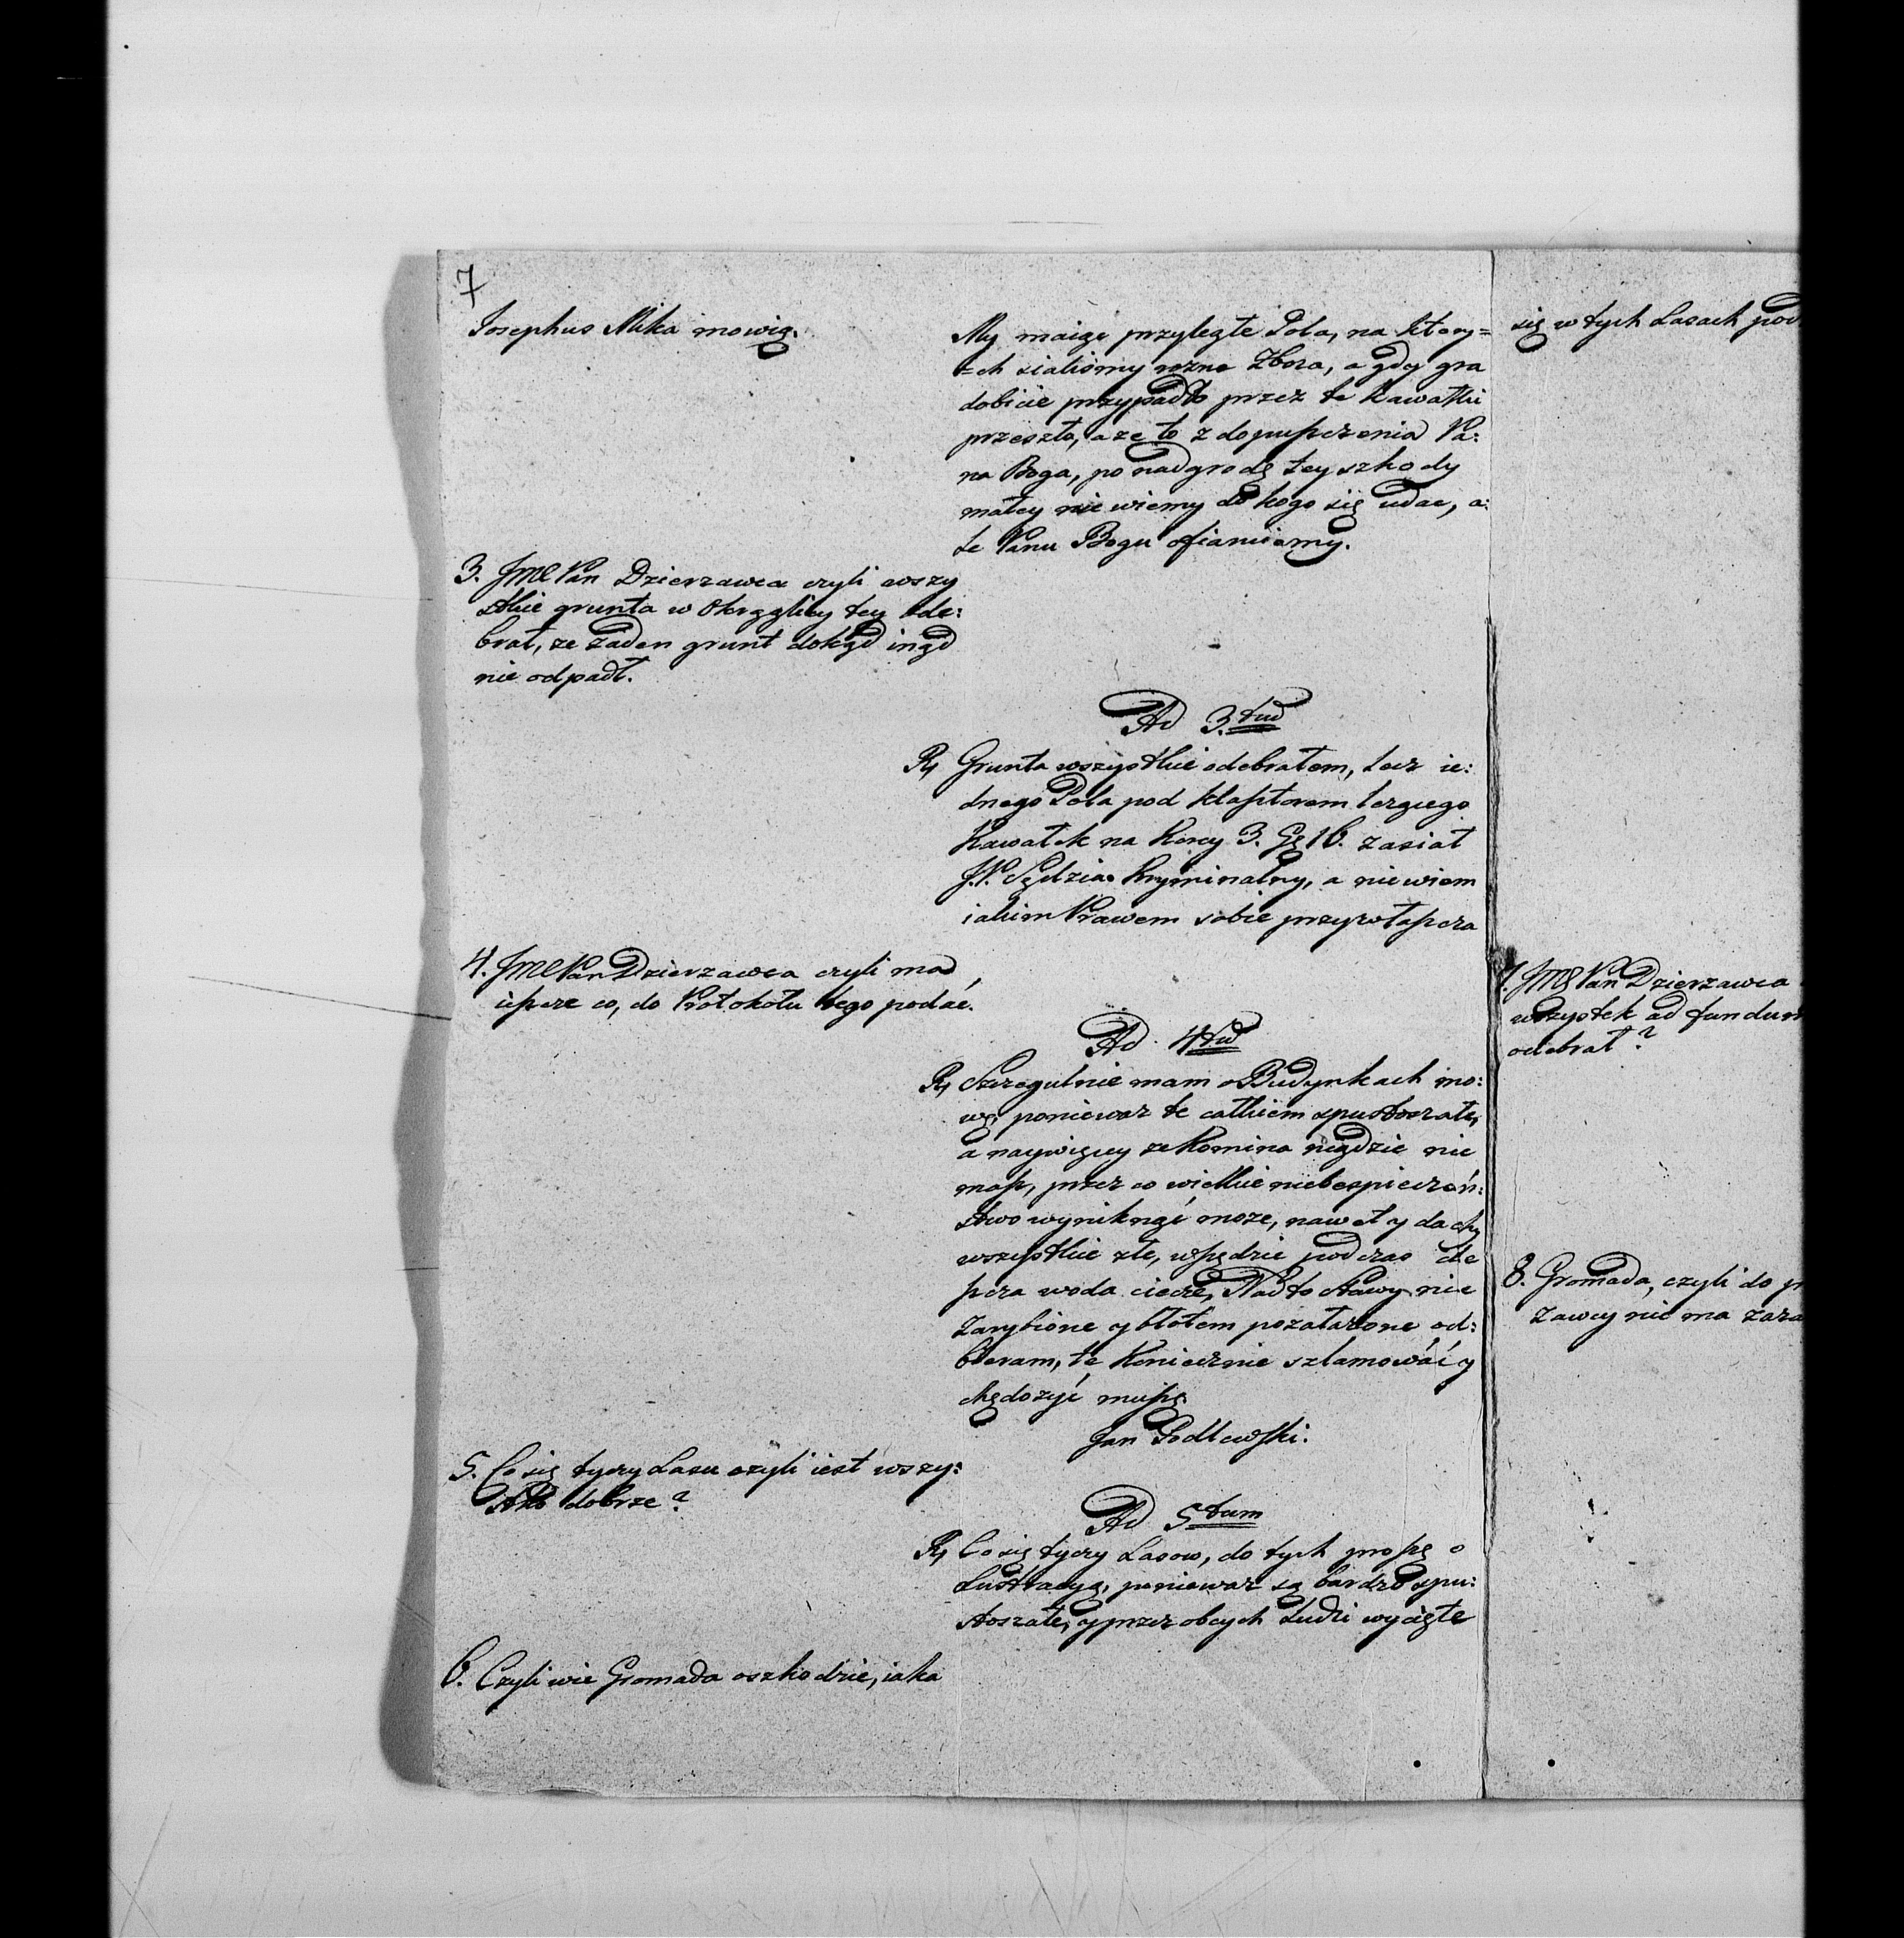 7
Josephus Mika mowią.
My maiąc przyległe Pola, na ktory=
=ch sialiśmy rozne Zboza, a gdy gra
dobicie przypadło przez te kawałki
przeszło, a ze to z dopuszczenia Pa:
na Boga, po nadgrodę tey szkody
małey nie wiemy do kogo się udac, a:
le Panu Bogu ofiaruiemy.
3. JMC Pan Dzierzawca czyli wszy
stkie grunta w Okrąglicy tey ode:
brał, ze zaden grunt dokąd inąd
nie odpadł.
Ad 3.tiu
Rx Grunta wszystkie odebrałem, lecz ie:
dnego Pola pod klasztorem lezącego
Kawałek na Korcy 3. Gę 16. zasiał
J.P. Sędzia Kryminalny, a nie wiem
iakim Prawem sobie przywłaszcza
4. JMC Pan Dzierzawca czyli ma
ieszcze co, do Protokołu tego podać.
Ad 4tu
Rx Szczegulnie mam o Budynkach mo:
wę, poniewaz te całkiem spustoszałe,
a naywięcy ze Komina nigdzie nie
masz, przez co wielkie niebespieczeń:
stwo wyniknąć moze, nawet y dachy
wszystkie złe, wszędzie podczas de
szcza woda ciecze, Nadto Stawy nie
Zarybione y błotem pozatarzone od:
bieram, te Koniecznie szlamować y
chędozyć muszę.
Jan Podlewski.
5. Co się tyczy Lasu czyli iest wszy:
stko dobrze?
Ad 5tum
Rx Co się tyczy Lasow, do tych proszę o
Lustracyą, poniewaz są bardzo spu:
stoszałe, y przez obcych Ludzi wycięte
6. Czyli wie Gromada o szkodzie, iaka
się w tych Lasach pod
7. JMC Pan Dzierzawca
wszystek ad fundum
odebrał?
8. Gromada, czyli do p
zawcy nie ma zaza